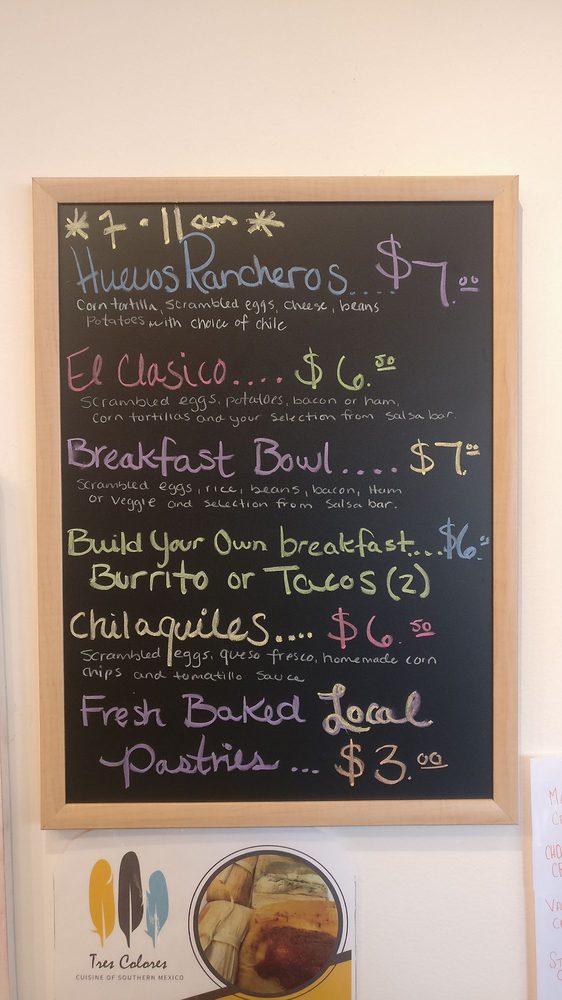 *7-11am*
Huevos Rancheros.... $7.00
Corn tortilla, scrambled eggs, cheese, beans
Potatoes with choice of chile
El Clasico.... $6.50
Scrambled eggs, potatoes, bacon or ham,
Corn tortillas and your selection from salsa bar.
Breakfast Bowl.... $7.00
Scrambled eggs, rice, beans, bacon, Ham
or veggie and selection from salsa bar.
Build Your Own breakfast.... $6.
Burrito or Tacos (2)
Chilaquiles.... $6.50
Scrambled eggs, queso fresco, homemade corn
chips and tomatillo sauce
Fresh Baked Local
Pastries... $3.00
Tres Colores
CUISINE OF SOUTHERN MEXICO